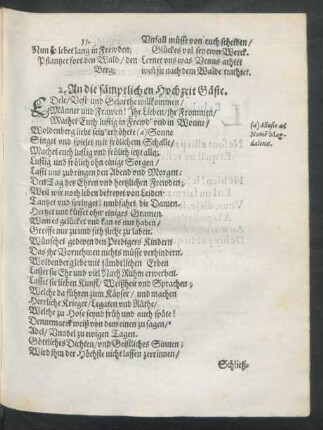 33.
Unfall müsse von euch scheiden/
Nun so lebet lang in Frewden;
Glückes vol sey ewer Werck.
Pflantzet fort den Wald/ den
Lernet uns was Venus achtet
Berg;
weil sie nach dem Walde trachtet.
2. An die sämptlichen Hochzeit Gäste.
Edele/ Vest- und Gelaerthe willkommen/
Männer und Frawen! Ihr Lieben/ ihr Frommen/
Machet Euch lustig in Freud' und Wonne/
Woldenberg liebt sein' erhöhete (a) Sonne
(a) Allusio ad Nomē Magdalenæ.
Singet und spielet mit frölichem Schalle/
Machet euch lustig und frölich seht alle;
Lustig und frölich ohn einige Sorgen/
Lasst uns zubringen den Abend und Morgen/
Den Tag der Ehren und hertzlichen Frewden/
Weil wir noch leben befreyet von Leiden.
Tantzet und springet! umbfahet die Damen.
Hertzet und küsset ohn' einiges Gramen.
Wem es gelücket und kan es nur haben/
Greiffe nur zu und sich suche zu laben.
Wünschet gedeyen den Predigers Kindern
Das ihr Vornehmen nichts müsse verhindern.
Woldenberg lebe mit sämbtlichen Erben
Lasset sie Ehr und viel Nach Ruhm erwerben.
Lasset sie lieben Kunst/ Weißheit und Sprachen;
Welche da führen zum Käyser/ und machen
Herrliche Krieger/ Legaten und Räthe/
Welche zu Hofe seynd früh und auch späte!
Dennemarck weiß von dem einen zu sagen/*
Adel/ Gnade zu ewigen Tagen.
Göttliches Dichten/ und Geistliches Sinnen;
Wird ihm der Höchste nicht lassen zerrinnen/
Schließ-